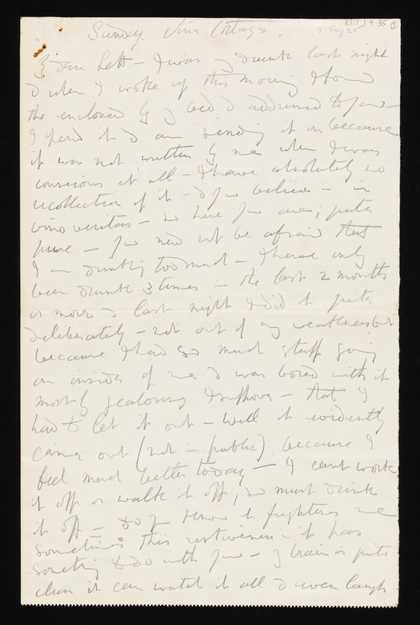 Sunday
– I was drunk last night
& when I woke up this morning I found
the enclosed by my bed & addressed to you –
I send it & am sending it on because
it was not written by me when I was
conscious at all – I have absolutely no
recollection of it – & if you believe – in
vino veritas – so here you are, quite
pure – you need not be afraid that
I am drinking too much – I have only
been drunk 3 times in the last 2 months
or more & last night I did it quite
deliberately – not out of any weakness but
because I had so much stuff going
on inside of me & I was bored with it
mostly jealousy I suppose – that I
had to let it out – well it evidently
came out (not in public) because I
feel much better today – I can't work
it off or walk it off, so must drink
it off – do you know it frightens me
sometimes this restiveness – it has
something to do with you – my brain is quite
clear it can watch it all & even laugh